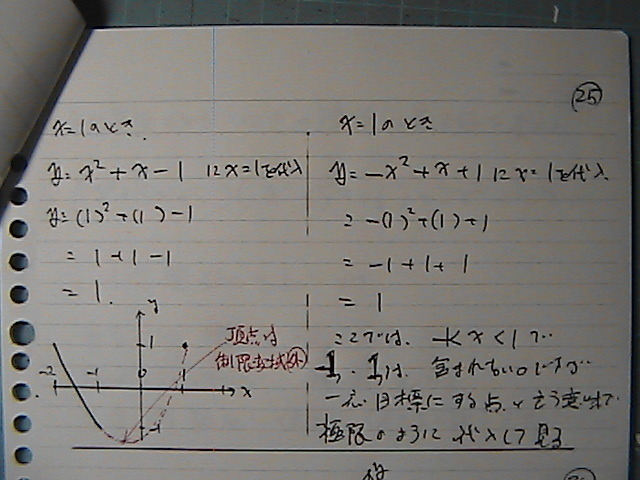 25
x=1のとき.
y=x²+x-1 にx=1を代入
y=(1)²+(1)-1
=1+1-1
=1.
y
1
頂点は
制限区域外
-2 -1 0 1 x
-1
x=1のとき
y=-x²+x+1 にx=1を代入
=-(1)²+(1)+1
=-1+1+1
=1
ここでは、-1<x<1で
-1, 1は、含まれない
一応目標にする点、という意味で
極限のように代入して見る